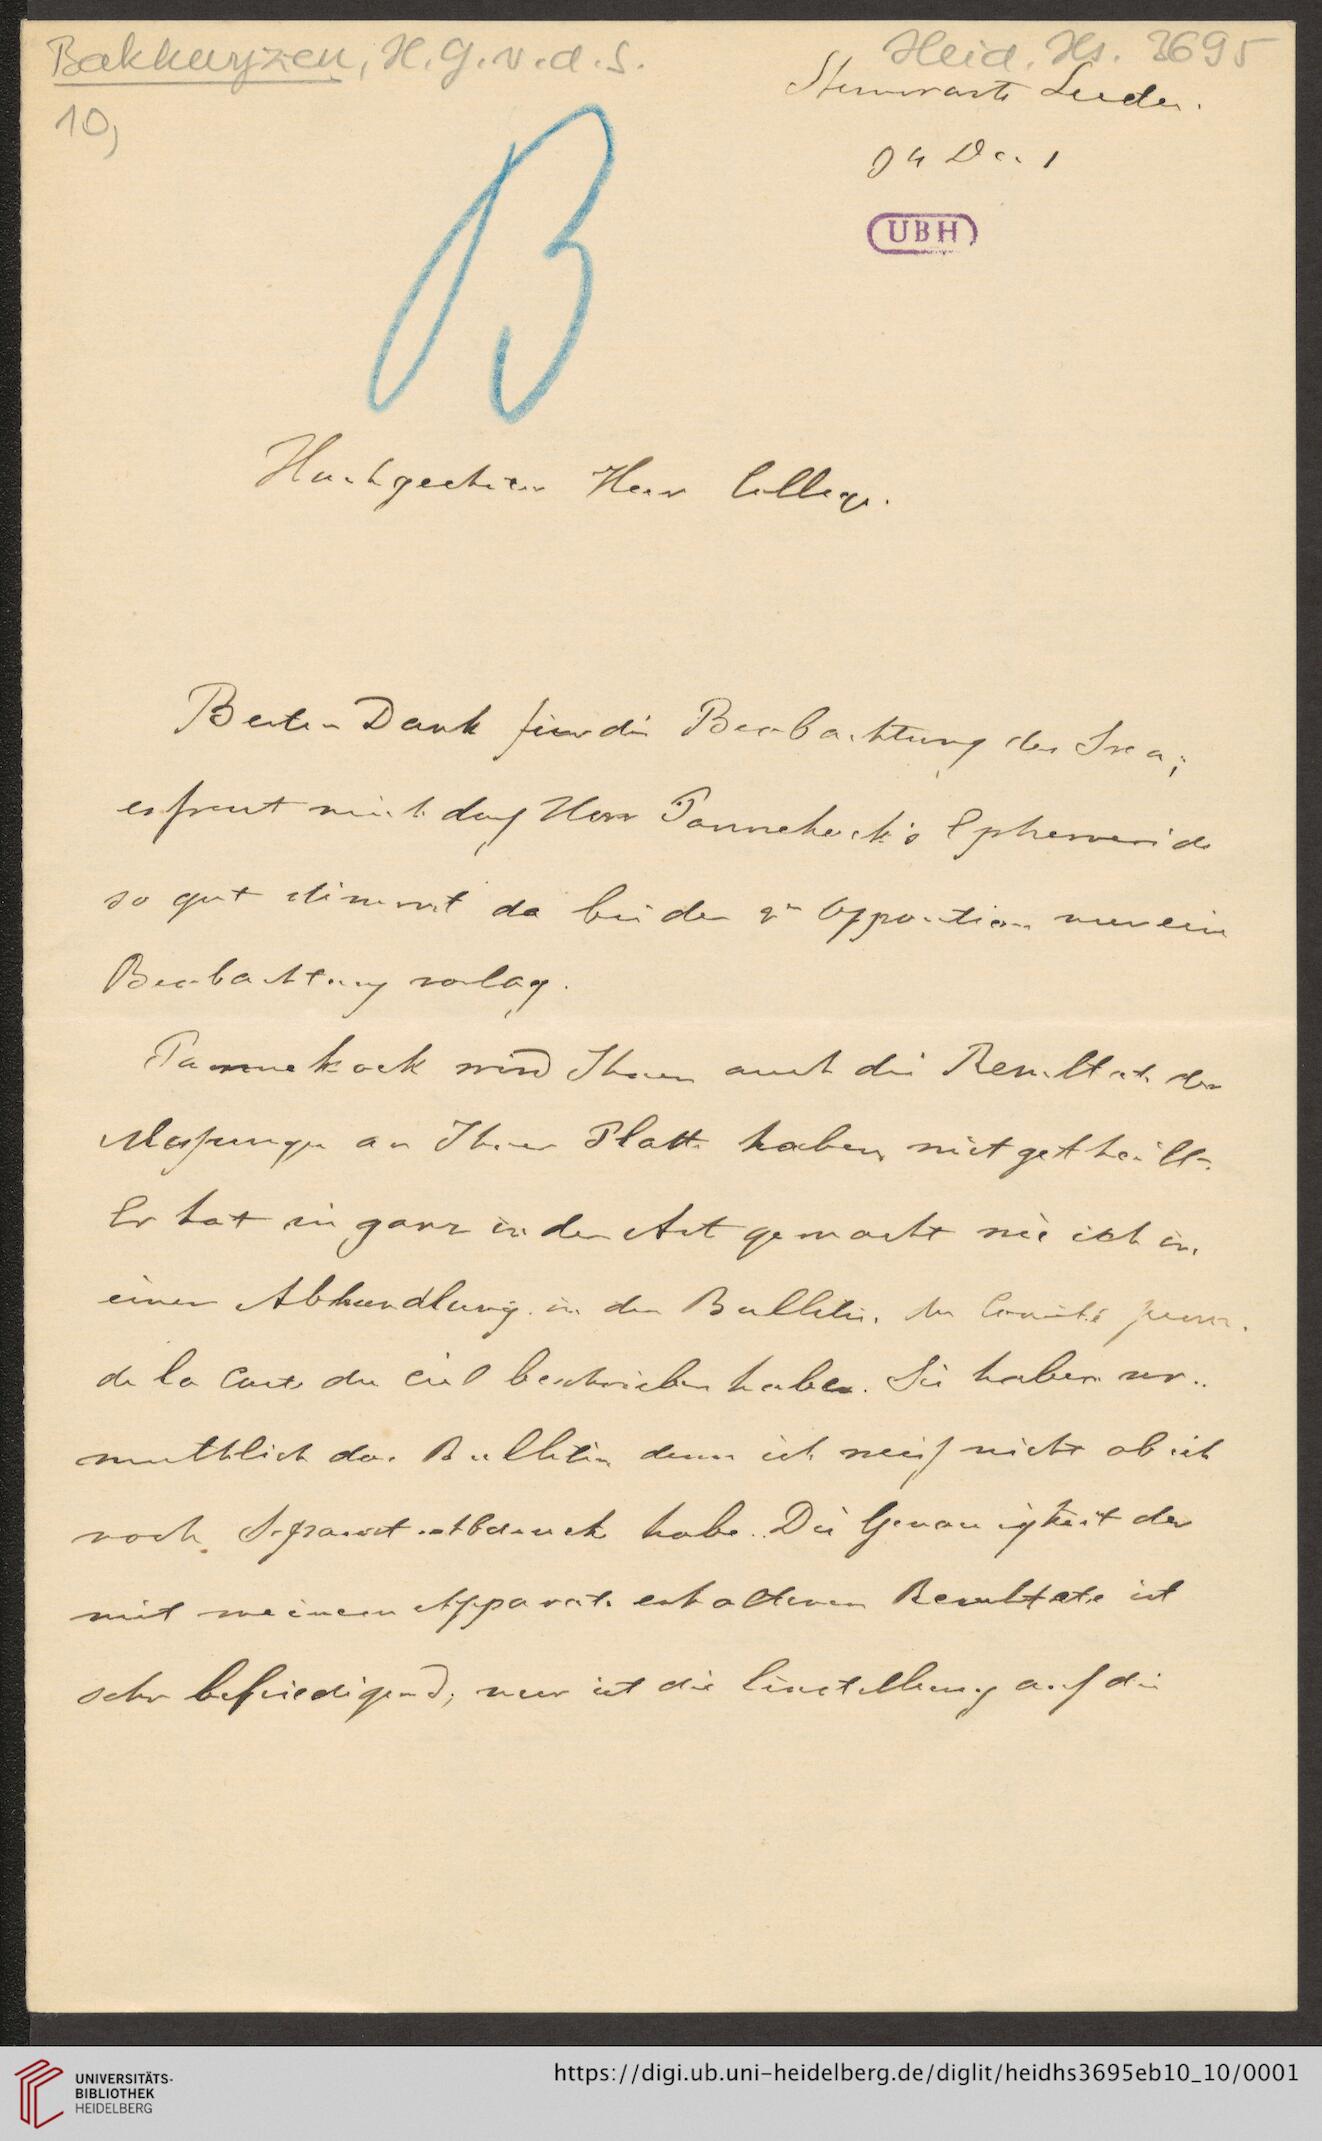 Bakhuyzen, H. G. v. d. S.
Heid. Hs. 3695
10,
Sternwarte Leiden.
94 Dec. 1
UBH
B
Hochgeehrter Herr College.
Besten Dank für die Beobachtung der Svea;
es freut mich daß Herr Pannekoek's Ephemeride
so gut stimmt da bei der Opposition nur eine
Beobachtung vorlag.
Pannekoek wird Ihnen auch die Resultate der
Messungen an Ihrer Platte haben mitgetheilt.
Er hat sie ganz in der Art gemacht wie ich in
einer Abhandlung in den Bulletin du Comité perm.
de la Carte du Ciel beschrieben habe. Sie haben ver-
muthlich das Bulletin denn ich weiß nicht ob ich
noch Separatabdruck habe. Die Genauigkeit der
mit meinem Apparate erhaltenen Resultate ist
sehr befriedigend; nur ist die Einstellung auf die
UNIVERSITÄTS-
BIBLIOTHEK
HEIDELBERG
https://digi.ub.uni-heidelberg.de/diglit/heidhs3695eb10_10/0001